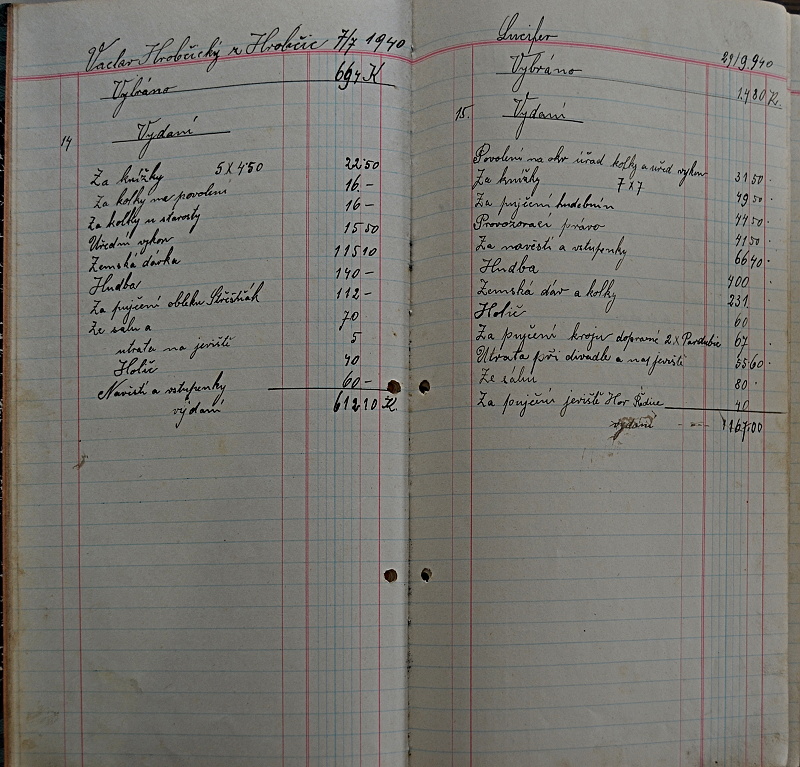 Vaclav Hrobčický z Hrobčic 7/7 1940
Vybráno 694 K
14
Vydaní
Za knížky 5 X 4·50 22·50
Za kolky na povolení 16.-
Za kolky u starosty 16-
Uřední vykon 15 50
Zemská davka 115 10
Hudba 140-
Za pujčení obleku 112-
Ze salu a 70
utrata na jeviště 5
Holič 40
Navěstí a vstupenky 60-
výdaní 612 10 K.
Lucifer
29/9 940
Vybráno 1.480 K.
15. Vydaní
Povolení na okr úřad kolky a uřed vykon 31 50·
Za knížky 7 X 7 49 50·
Za pujčení hudebnin 44 50·
Provozovací právo 41 50·
Za navěstí a vstupenky 66 40·
Hudba 400
Zemská dáv a kolky 231
Holič 60
Za pujčení kroju dopravné 2 x Pardubic 67
Utrata při divadle a na jeviště 55 60·
Ze sálu 80·
Za pujčení jeviště Hor Ředice 40
vydaní 1167·00